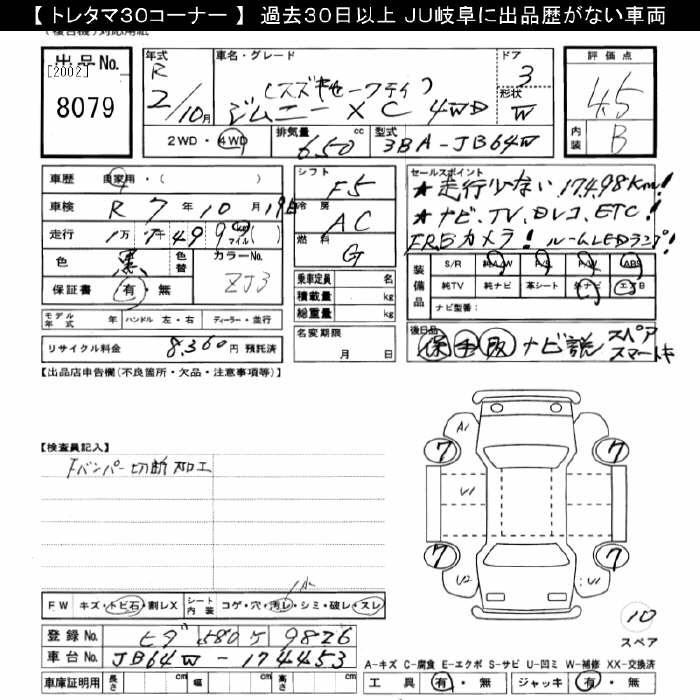 【 トレタマ30コーナー 】 過去30日以上 JU岐阜に出品歴がない車両
出品No.
[2002]
8079
年式 R 2/10月
車名・グレード
(スズキセーフティ)
ジムニー XC 4WD
ドア 3
形状 W
評価点 4.5
内装 B
2WD・4WD
排気量 650 cc
型式 3BA-JB64W
車歴 自家用・( )
車検 R 7年 10月 19日
走行 1万 7千 4 9 9 マイル( )
色 黒
色替
カラーNo. ZJ3
保証書 有・無
モデル年式 年
ハンドル 左・右
ディーラー・並行
リサイクル料金 8,360円 預託済
シフト F5
冷房 AC
燃料 G
乗車定員 名
積載量 kg
総重量 kg
名変期限 月 日
セールスポイント
★走行少ない 17,498km!
★ナビ、TV、Dレコ、ETC!
F.R.Bカメラ! ルームLEDランプ!
装備品
S/R 純A/W P/S P/W ABS
純TV 純ナビ 革シート 外ナビ エアB
ナビ型番:
後日品 保 手 取 ナビ説 スペア
スマートキー
【出品店申告欄(不良箇所・欠品・注意事項等)】
【検査員記入】
Fバンパー切断加工
A1
7 7
U1
7 7
U2 U1
10
スペア
FW キズ・トビ石・割レX
シート内装 コゲ・穴・汚レ・シミ・破レ・スレ
登録No. 580 9826
車台No. JB64W-174453
車庫証明用 長さ cm 幅 cm 高さ cm
A-キズ C-腐食 E-エクボ S-サビ U-凹ミ W-補修 XX-交換済
工具 有・無 ジャッキ 有・無